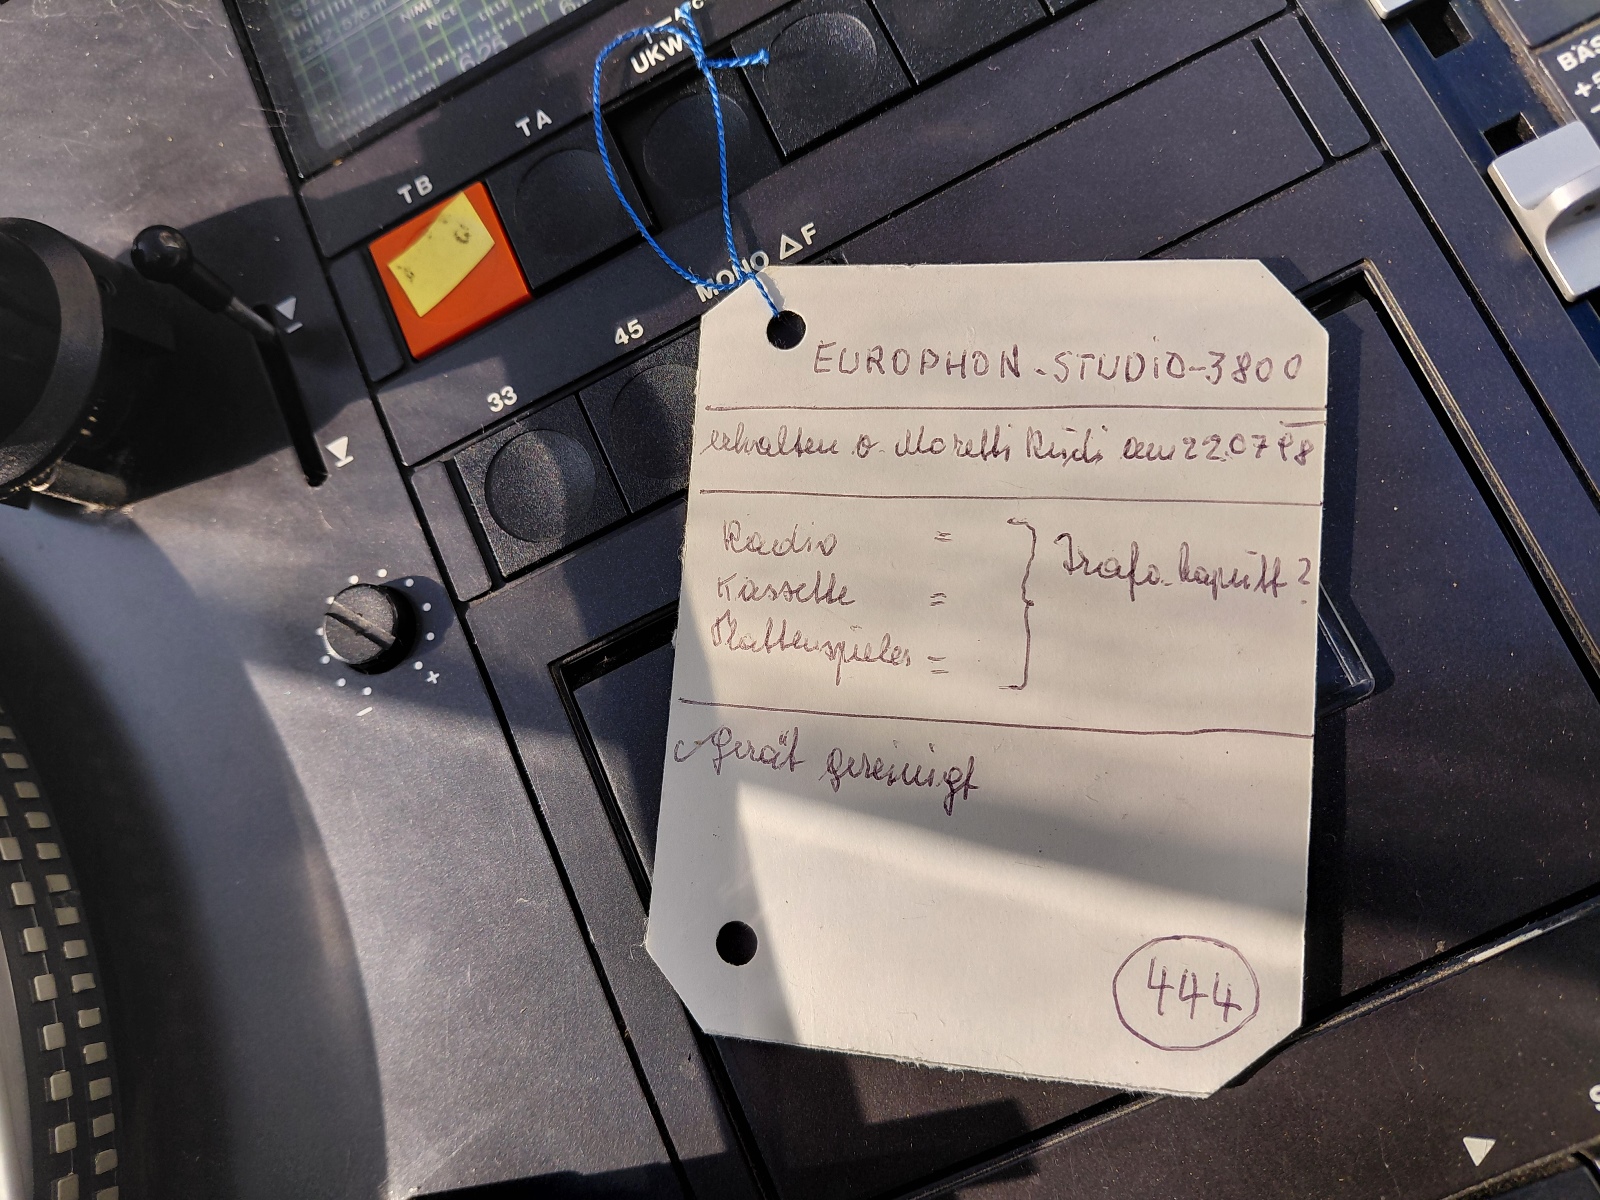 NIMES
NICE LILLE
UKW
TA
TB
MONO ΔF
45
33
BÄS
+5
+
-
EUROPHON-STUDIO-3800
erhalten v. Moretti Rudi am 22.07 98
Radio =
Kassette =
Plattenspieler =
} Trafo kaputt?
Gerät gereinigt
444